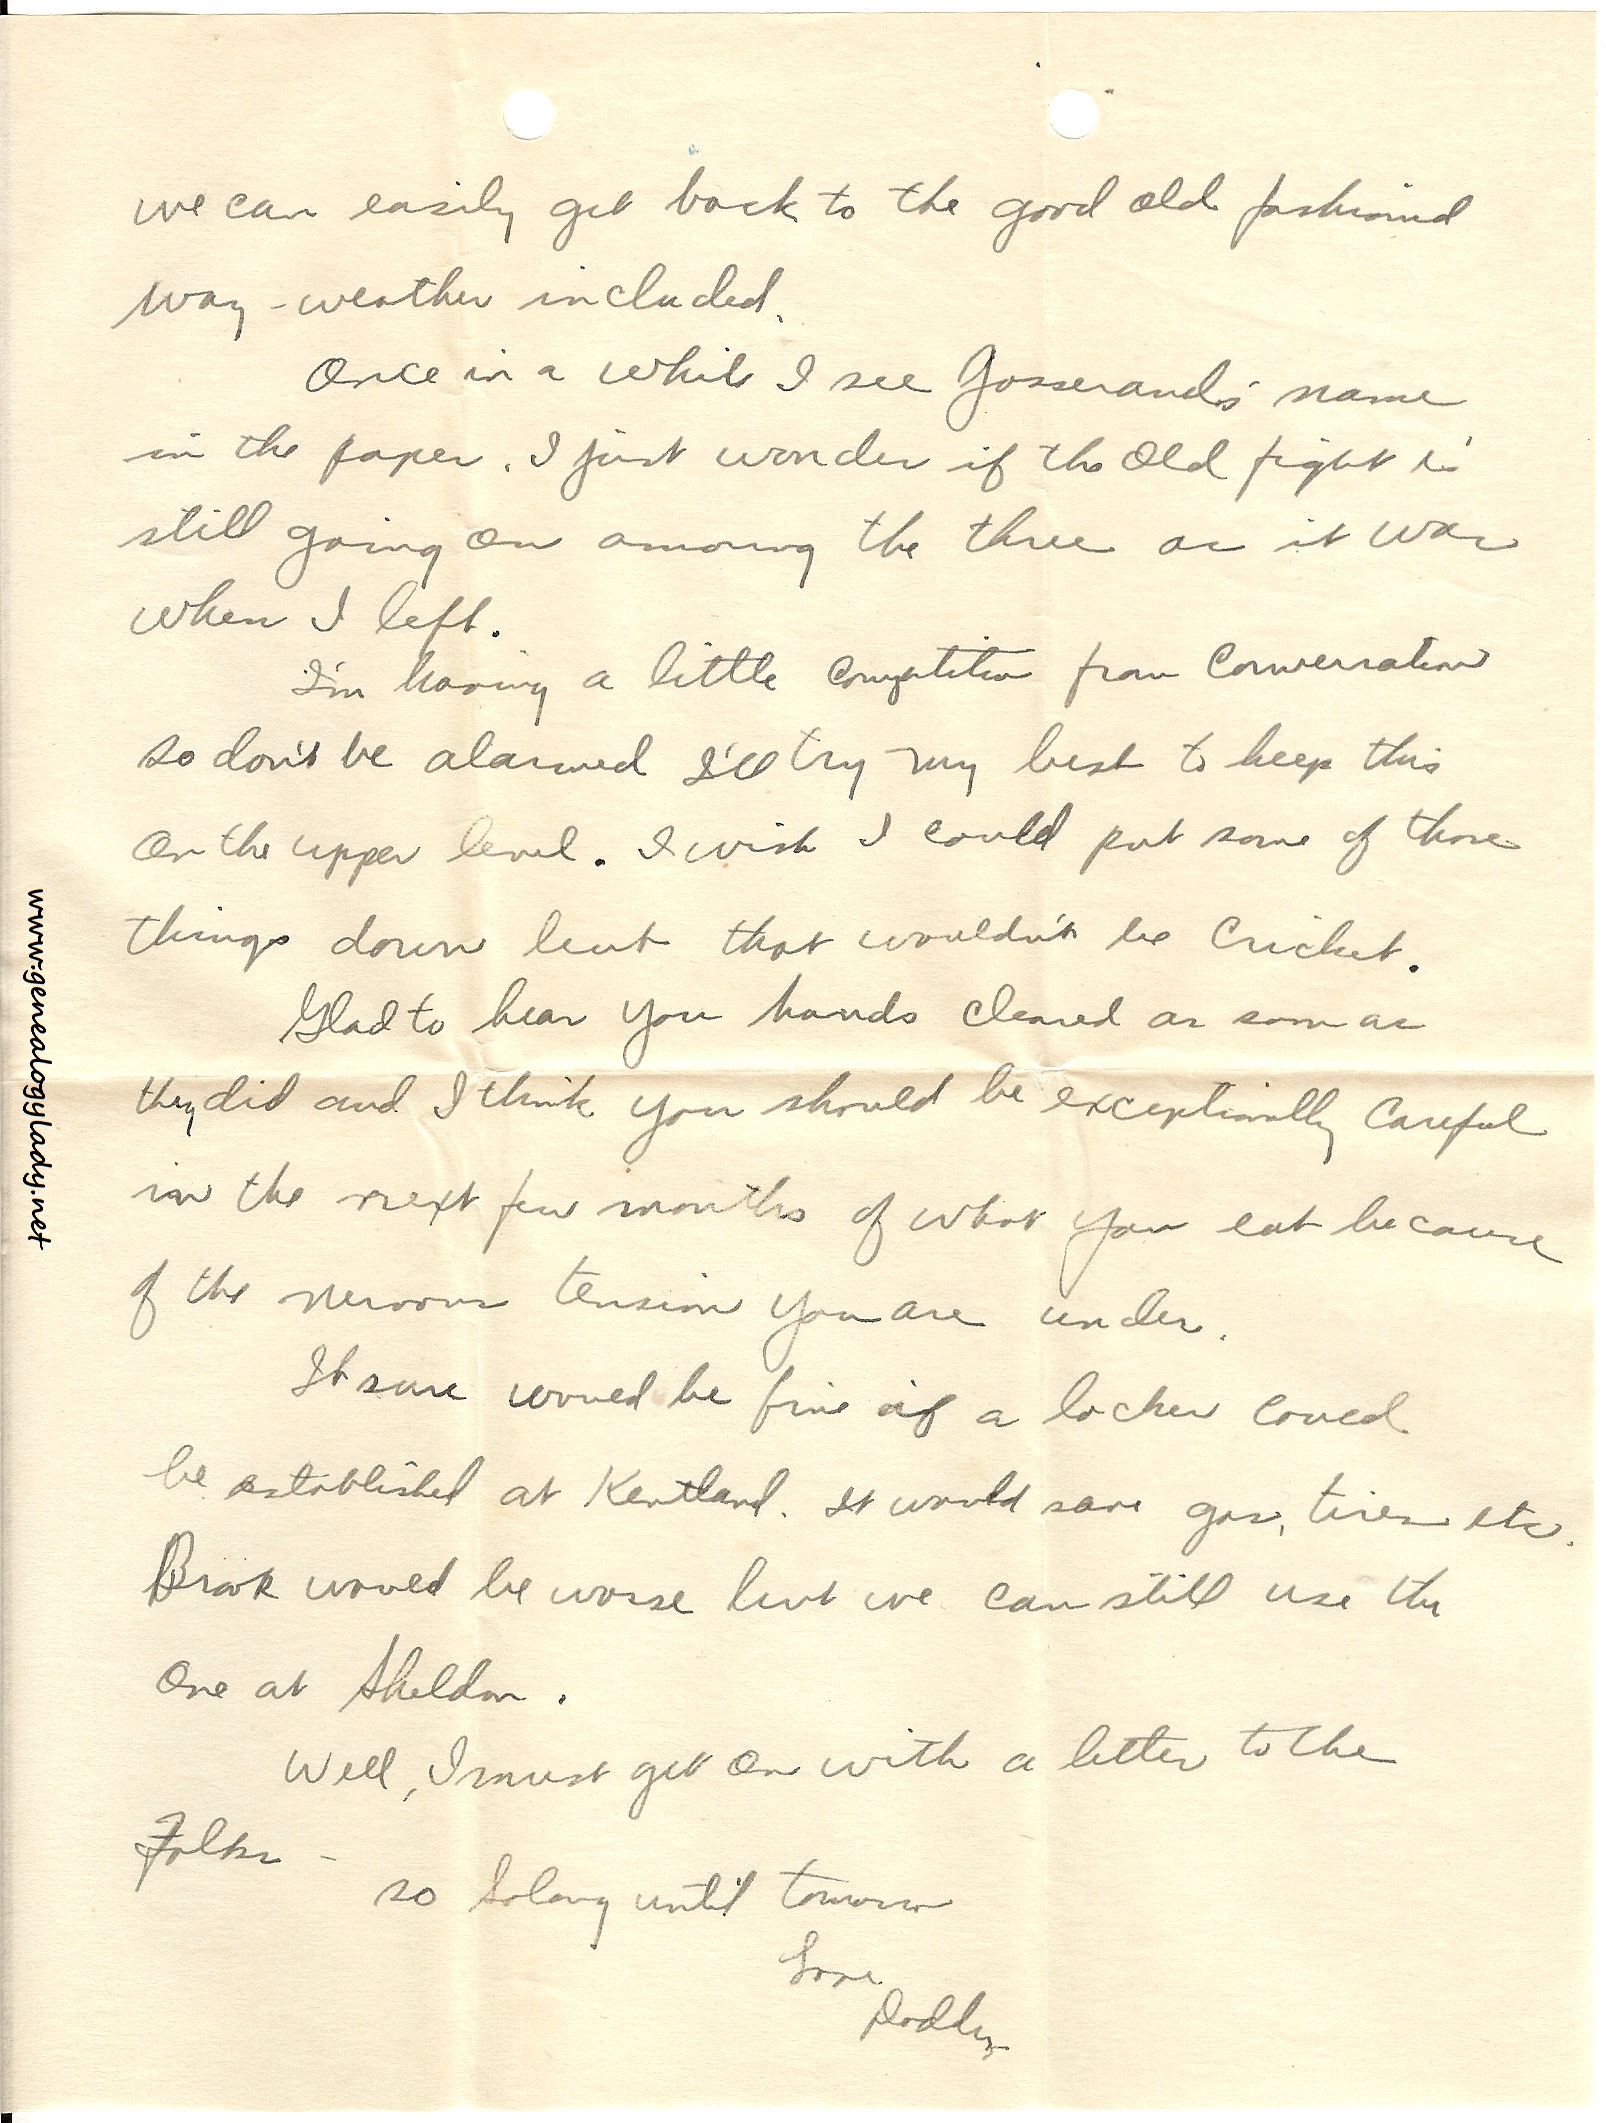 we can easily get back to the good old fashioned
way - weather included.
Once in a while I see Gosserand's name
in the paper. I just wonder if the old fight is
still going on among the three as it was
when I left.
I'm having a little competition from conversation
so don't be alarmed I'll try my best to keep this
on the upper level. I wish I could put some of those
things down but that wouldn't be cricket.
Glad to hear you hands cleared as soon as
they did and I think you should be exceptionally careful
in the next few months of what you eat because
of the nervous tension you are under.
It sure would be fine if a locker could
be established at Kentland. It would save gas, tires etc.
Brook would be worse but we can still use the
one at Sheldon.
Well, I must get on with a letter to the
Folks -
so Solong until tomorrow
Love
www.genealogylady.net